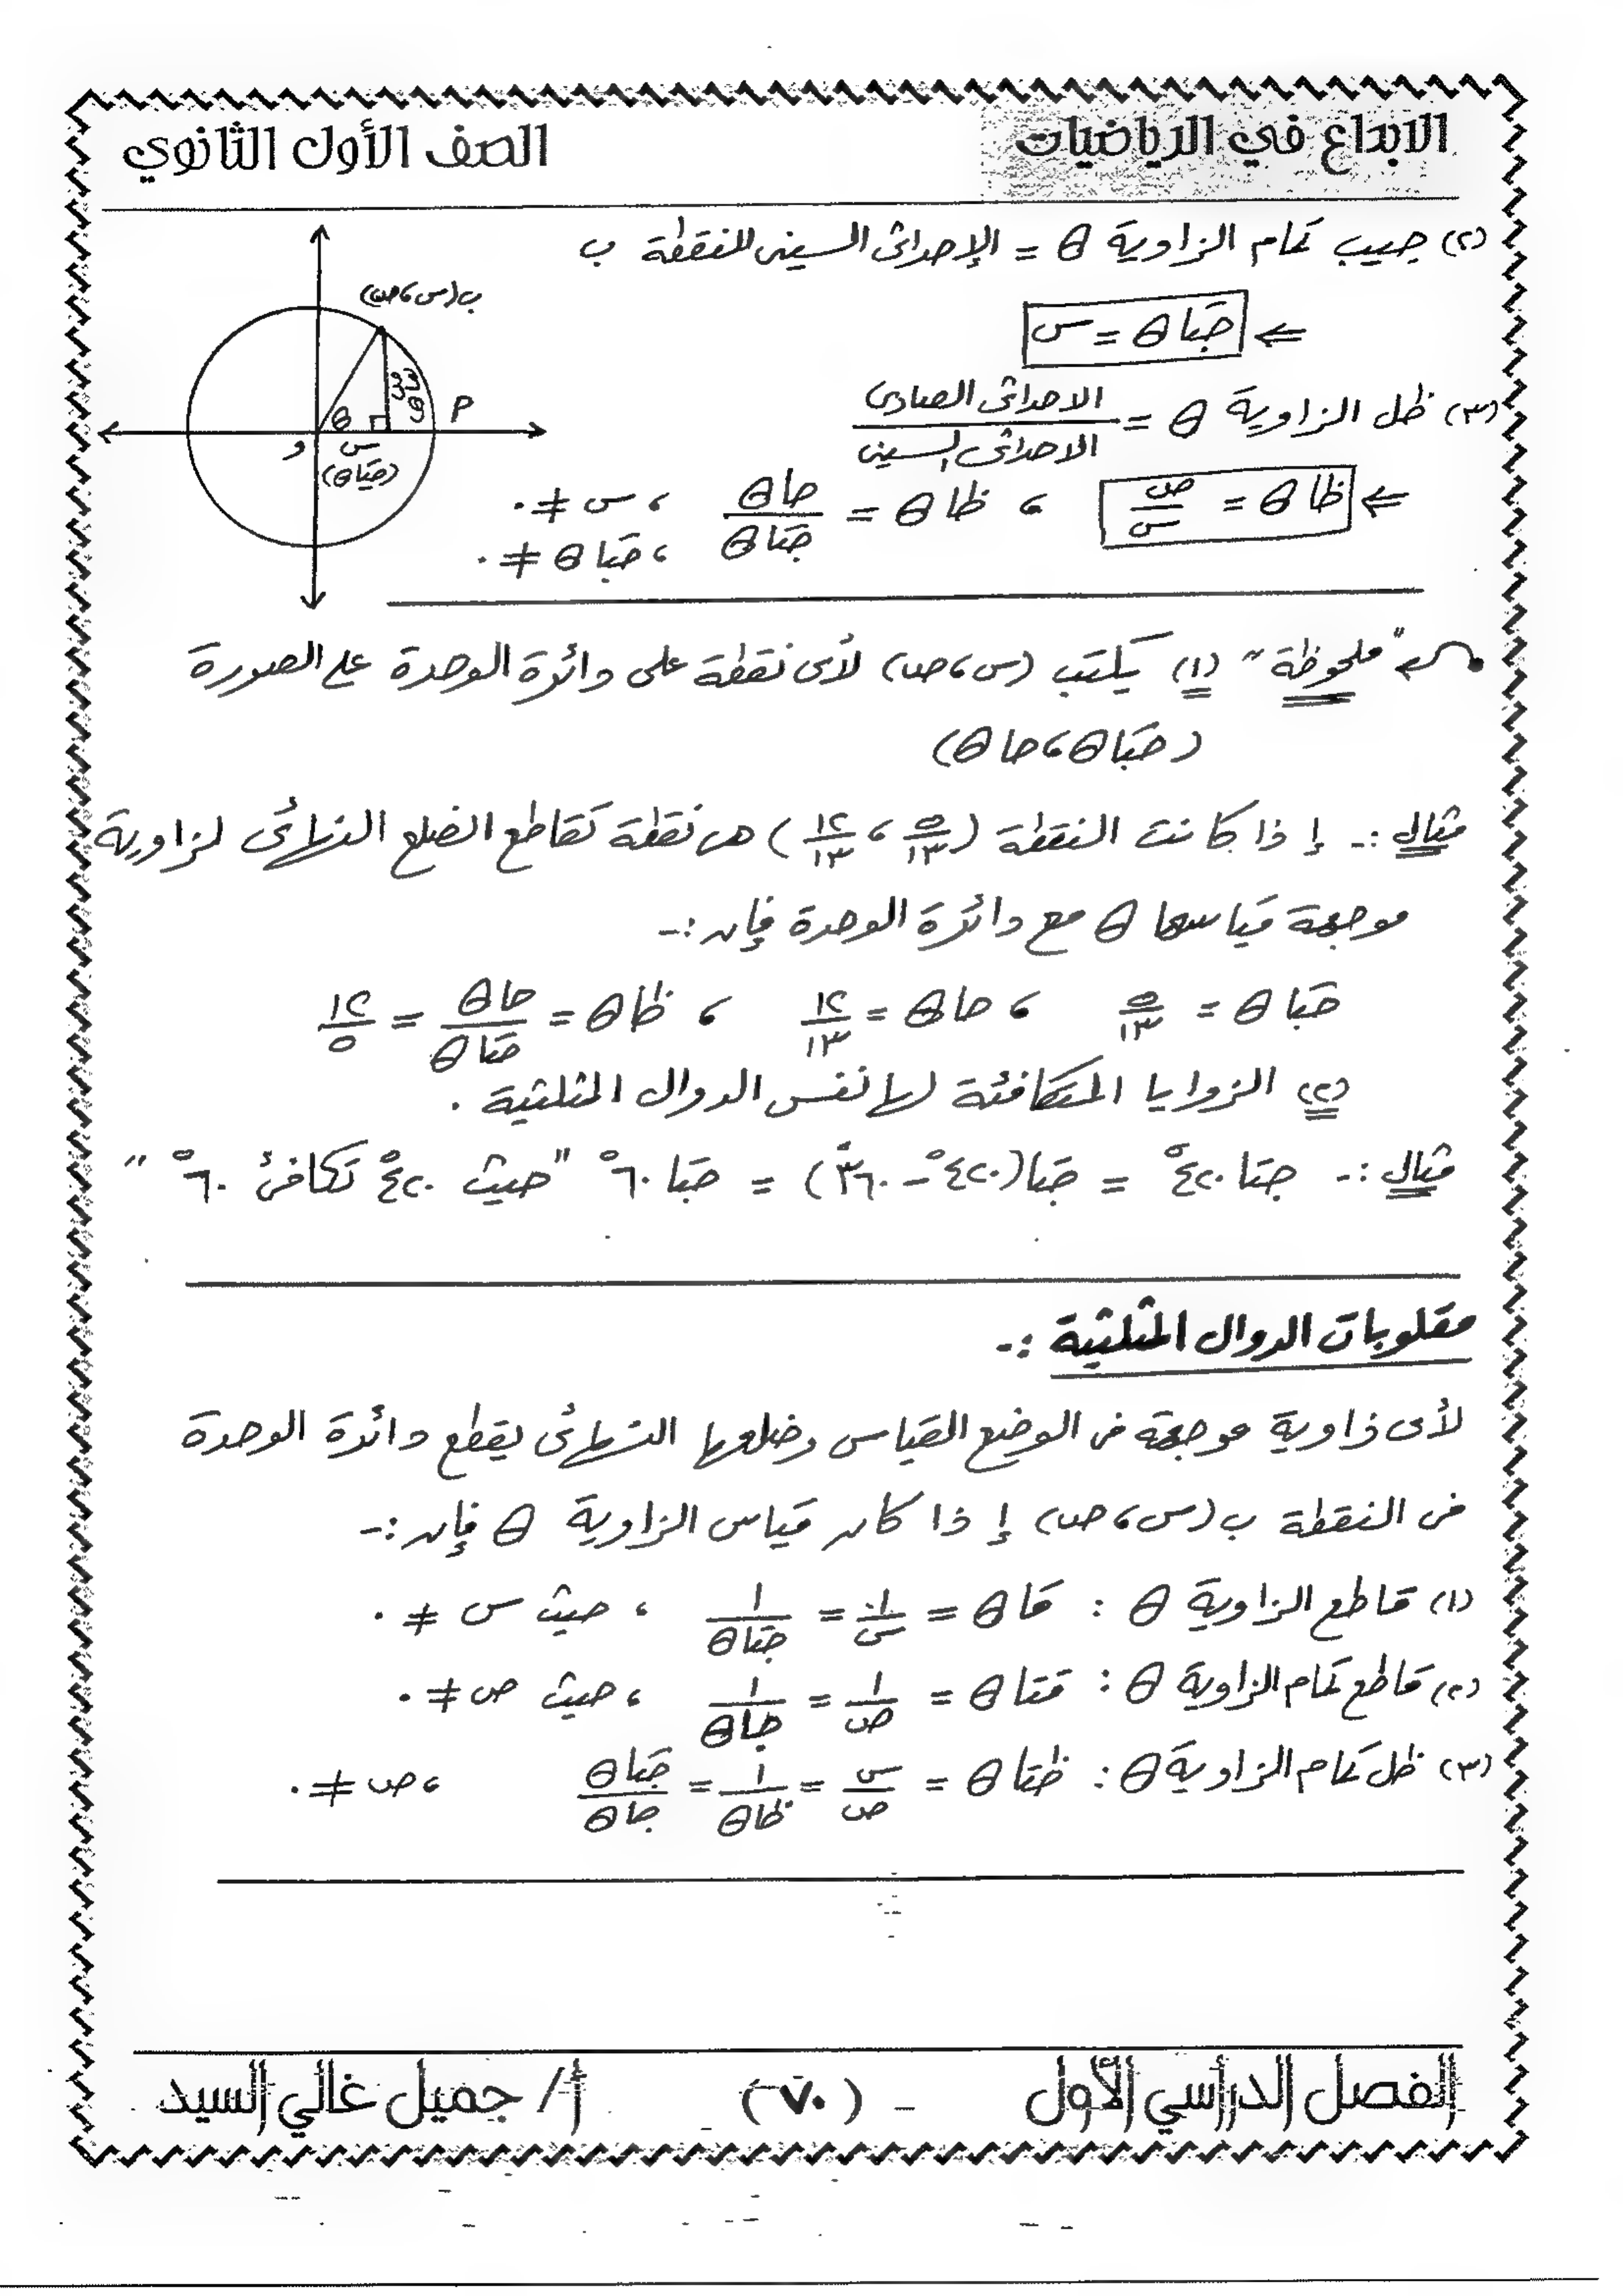 الابداع في الرياضيات
الصف الأول الثانوي
(٢) جيب تمام الزاوية θ = الإحداثى السينى للنقطة ب
⇐ جتا θ = س
(٣) ظل الزاوية θ = الاحداثى الصادى / الاحداثى السينى
⇐ ظا θ = ص / س ، ظا θ = جا θ / جتا θ ، س ≠ ٠
، جتا θ ≠ ٠
ب (س ، ص)
ص
جا θ
θ
و
س
(جتا θ)
P
"ملحوظة" (١) يكتب (س ، ص) لأى نقطة على دائرة الوحدة على الصورة
(جتا θ ، جا θ)
مثال :- إذا كانت النقطة (٥/١٣ ، ١٢/١٣) هى نقطة تقاطع الضلع النهائى لزاوية
موجهة قياسها θ مع دائرة الوحدة فإن :-
جتا θ = ٥/١٣ ، جا θ = ١٢/١٣ ، ظا θ = جا θ / جتا θ = ١٢/٥
(٢) الزوايا المتكافئة لها نفس الدوال المثلثية .
مثال :- جتا ٤٢٠° = جتا (٤٢٠° - ٣٦٠°) = جتا ٦٠° "حيث ٤٢٠° تكافئ ٦٠°"
مقلوبات الدوال المثلثية :-
لأى زاوية موجهة فى الوضع القياسى وضلعها النهائى يقطع دائرة الوحدة
فى النقطة ب (س ، ص) إذا كان قياس الزاوية θ فإن :-
(١) قاطع الزاوية θ : قا θ = ١/س = ١/جتا θ ، حيث س ≠ ٠
(٢) قاطع تمام الزاوية θ : قتا θ = ١/ص = ١/جا θ ، حيث ص ≠ ٠
(٣) ظل تمام الزاوية θ : ظتا θ = س/ص = ١/ظا θ = جتا θ / جا θ ، ص ≠ ٠
الفصل الدراسي الأول
(٧٠)
أ/ جميل غالي السيد